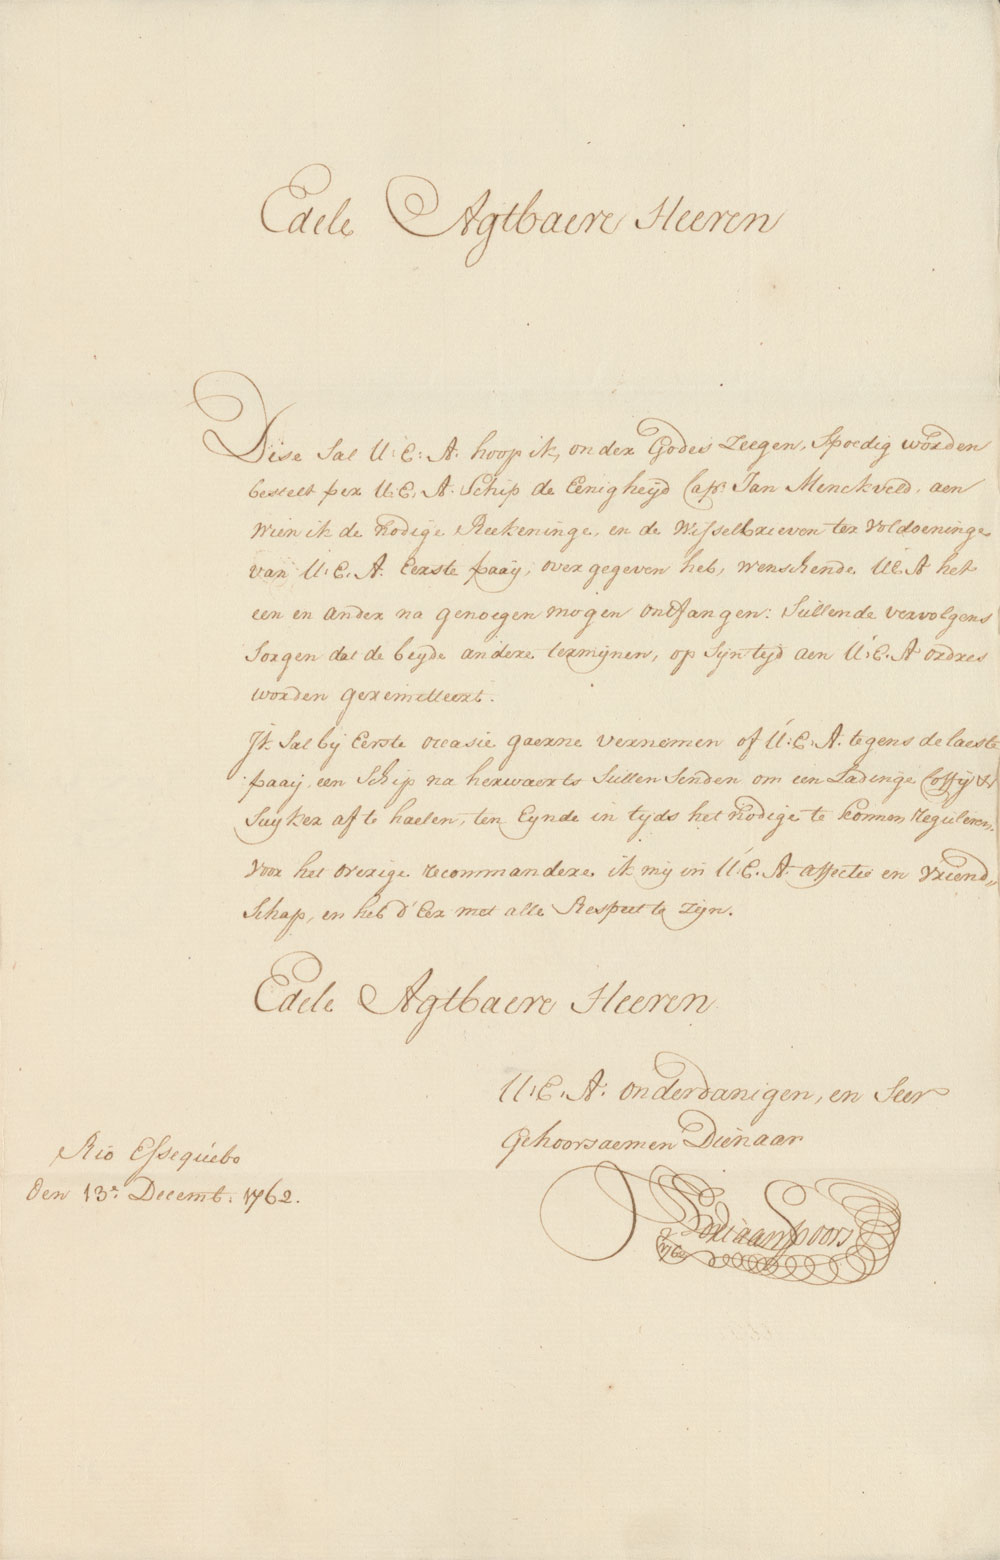 Edele Agtbaere Heeren
Dese Sal U: E: A: hoop ik, onder Godes Zeegen, Spoedig worden
bestelt per U: E: A: Schip de Eenigheijd Capn. Jan Menckveld, aen
wien ik de Nodige Reekeninge, en de Wisselbrieven ter Voldoeninge
van U. E. A. Eerste paaij, over gegeven heb, wenschende UEA het
een en ander na genoegen mogen ontfangen: Sullende vervolgens
Sorgen dat de beyde andere termijnen, op Sijn tijd aen U. E. A ordres
worden geremitteert.
Ik Sal bij Eerste occasie gaerne vernemen of U: E: A. tegens de laeste
paaij een Schip na herwaerts Sullen Senden om een Ladinge Coffij &
Suyker af te haelen, ten Eynde in tyds het Nodige te konnen reguleren.
Voor het overige recommandere ik mij in U. E. A. affectie en Vriend„
Schap, en heb d'Eer met alle Respect te Zijn.
Edele Agtbaere Heeren
U. E. A. onderdanigen, en Seer
Gehoorsaemen Dienaar
Rio Essequebo
den 13n. Decemb. 1762.
Adriaan Spoors
1762